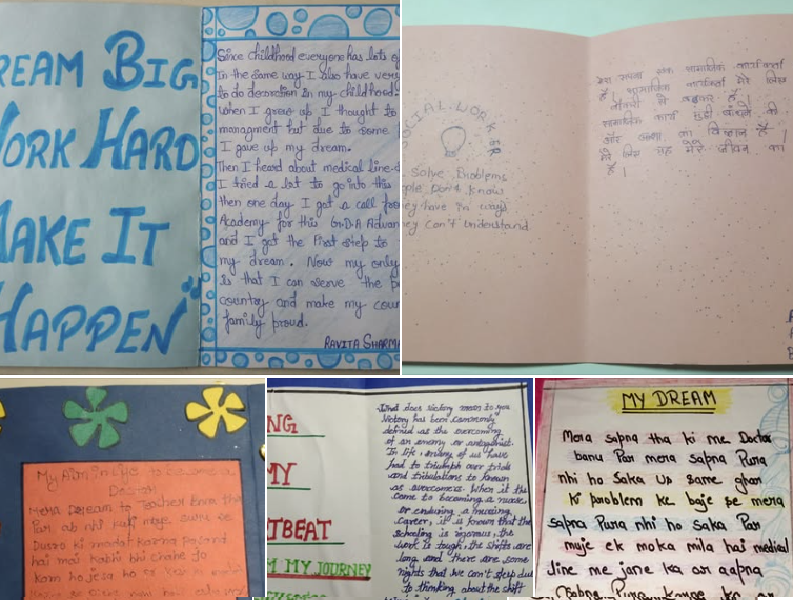 REAM BIG
ORK HARD
AKE IT
HAPPEN
Since childhood everyone has lots of
In the same way I also have very
to do decoration in my childhood
when I grew up I thought to
managment but due to some
I gave up my dream.
Then I heard about medical line
I tried a lot to go into this
then one day I got a call fro
Academy for this G.D.A Advan
and I got the first step to
my dream. Now my only
is that I can serve the
country and make my cou
family proud.
RAVITA SHARMA
SOCIAL WORKER
Solve Problems
ple Don't know
ey have in ways
ey can't understand
मेरा सपना एक सामाजिक कार्यकर्ता
है। सामाजिक कार्यकर्ता मेरे लिए
नौकरी से बढ़कर है।
सामाजिक कार्य
और का विज्ञान है।
मेरे लिए यह मेरे जीवन का
है।
My Aim in life to become a
Doctor
Mera Dream to Teacher bnna tha
Par ab nhi muje suru se
Dusro ki madat karna pasand
hai mai kabhi bhi chahe jo
kam ho jesa ho
NG
MY
TBEAT
M MY JOURNEY
What does victory mean to you
Victory has been commonly
defined as the overcoming
of an enemy or antagonist.
In life, many of us have
had to triumph over trials
and tribulations to known
as overcomers. When it the
come to becoming a nurse
or enduring a nursing
career, it is known that the
schooling is rigorous, the
work is tough, the shifts are
long and there are some
nights that we can't sleep due
to thinking about the shift
MY DREAM
Mera sapna tha ki me Doctor
banu Par mera sapna Pura
nhi ho saka us same ghar
ki problem ke baje se mera
sapna Pura nhi ho saka Par
muje ek moka mila hai medical
line me jane ka or aapna